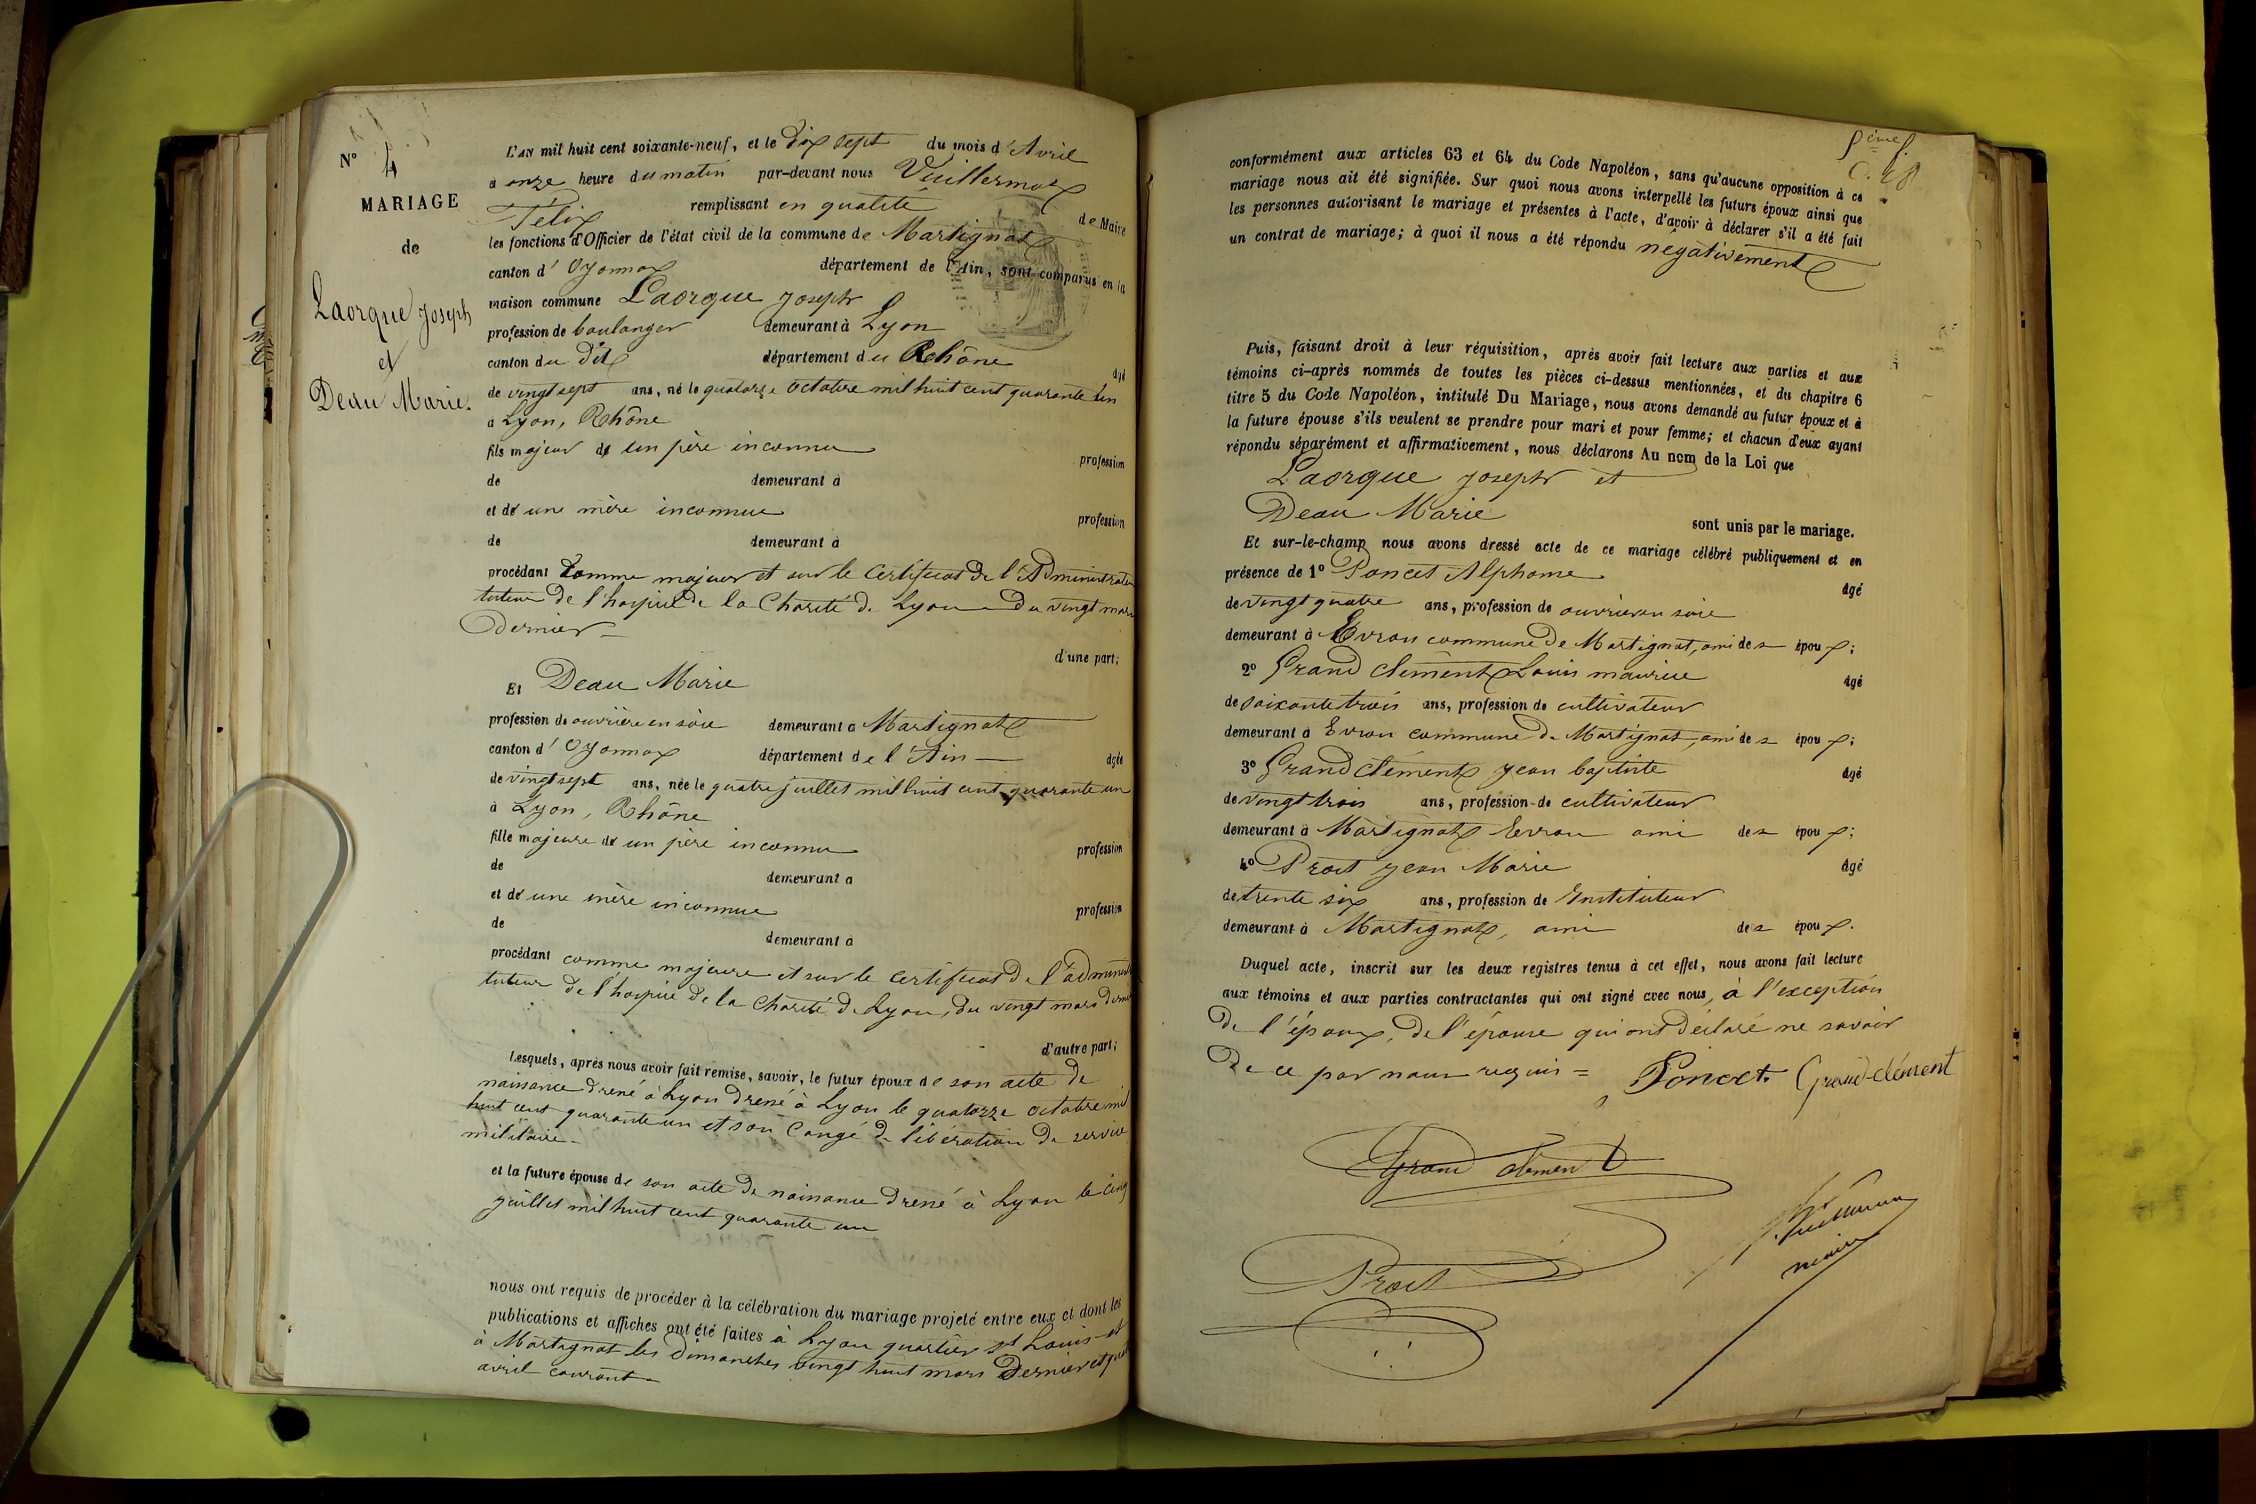 N° 4
MARIAGE
de
Laorque Joseph
et
Deau Marie.
L'AN mil huit cent soixante-neuf, et le dix sept du mois d'Avril
a onze heure du matin par-devant nous Vuillermoz
Félix remplissant en qualité de Maire
les fonctions d'Officier de l'état civil de la commune de Martignat
canton d' Oyonnax département de l'Ain, sont comparus en la
maison commune Laorque Joseph
profession de boulanger demeurant à Lyon
canton du dit département du Rhône âgé
de vingt sept ans, né le quatorze octobre mil huit cent quarante un
a Lyon, Rhône
fils majeur de un père inconnu profession
de demeurant à
et de une mère inconnue profession
de demeurant à
procédant comme majeur et sur le certificat de l'Administrateur
tuteur de l'hospice de la Charité de Lyon du vingt mars
dernier
d'une part;
Et Deau Marie
profession de ouvrière en soie demeurant a Martignat
canton d' Oyonnax département de l'Ain âgée
de vingt sept ans, née le quatre juillet mil huit cent quarante un
à Lyon, Rhône
fille majeure de un père inconnu profession
de demeurant a
et de une mère inconnue profession
de demeurant à
procédant comme majeure et sur le certificat de l'admini
tuteur de l'hospice de la Charité de Lyon, du vingt mars dern
d'autre part;
Lesquels, après nous avoir fait remise, savoir, le futur époux de son acte de
naissance dressé à Lyon dressé à Lyon le quatorze octobre mil
huit cent quarante un et son Congé de libération du service
militaire
et la future épouse de son acte de naissance dressé à Lyon le cinq
juillet mil huit cent quarante un
nous ont requis de procéder à la célébration du mariage projeté entre eux et dont les
publications et affiches ont été faites à Lyon quartier St Louis et
à Martignat les dimanches vingt huit mars dernier et
avril courant
conformément aux articles 63 et 64 du Code Napoléon, sans qu'aucune opposition à ce
mariage nous ait été signifiée. Sur quoi nous avons interpellé les futurs époux ainsi que
les personnes autorisant le mariage et présentes à l'acte, d'avoir à déclarer s'il a été fait
un contrat de mariage; à quoi il nous a été répondu négativement
Puis, faisant droit à leur réquisition, après avoir fait lecture aux parties et aux
témoins ci-après nommés de toutes les pièces ci-dessus mentionnées, et du chapitre 6
titre 5 du Code Napoléon, intitulé Du Mariage, nous avons demandé au futur époux et à
la future épouse s'ils veulent se prendre pour mari et pour femme; et chacun d'eux ayant
répondu séparément et affirmativement, nous déclarons Au nom de la Loi que
Laorque Joseph et
Deau Marie sont unis par le mariage.
Et sur-le-champ nous avons dressé acte de ce mariage célébré publiquement et en
présence de 1° Poncet Alphonse âgé
de vingt quatre ans, profession de ouvrier en soie
demeurant à Evron commune de Martignat, ami des époux;
2° Grand clément Louis maurice âgé
de soixante trois ans, profession de cultivateur
demeurant à Evron commune de Martignat, ami des époux;
3° Grand clément Jean baptiste âgé
de vingt trois ans, profession de cultivateur
demeurant à Martignat Evron ami des époux;
4° Prost Jean Marie âgé
de trente six ans, profession de Instituteur
demeurant à Martignat, ami des époux.
Duquel acte, inscrit sur les deux registres tenus à cet effet, nous avons fait lecture
aux témoins et aux parties contractantes qui ont signé avec nous, à l'exception
De l'époux, de l'épouse qui ont déclaré ne savoir
De ce par nous requis = Poncet. Grand-clément
Grand clément
Prost
maire